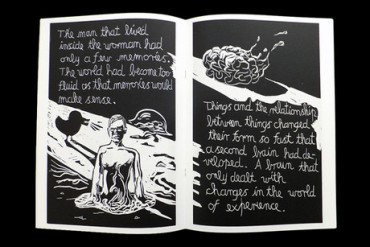 The man that lived
inside the woman had
only a few memories.
The world had become too
fluid as that memories would
make sense.
Things and the relationship
between things changed
their form so fast that
a second brain had de-
veloped. A brain that
only dealt with
changes in the world
of experience.